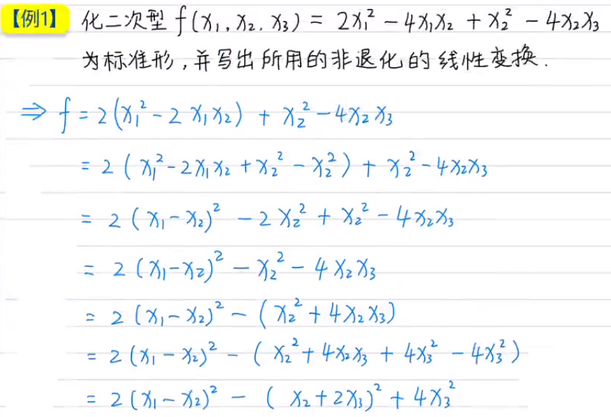 【例1】 化二次型 f(x₁, x₂, x₃) = 2x₁² - 4x₁x₂ + x₂² - 4x₂x₃
为标准形,并写出所用的非退化的线性变换.
⇒ f = 2(x₁² - 2x₁x₂) + x₂² - 4x₂x₃
= 2(x₁² - 2x₁x₂ + x₂² - x₂²) + x₂² - 4x₂x₃
= 2(x₁ - x₂)² - 2x₂² + x₂² - 4x₂x₃
= 2(x₁ - x₂)² - x₂² - 4x₂x₃
= 2(x₁ - x₂)² - (x₂² + 4x₂x₃)
= 2(x₁ - x₂)² - (x₂² + 4x₂x₃ + 4x₃² - 4x₃²)
= 2(x₁ - x₂)² - (x₂ + 2x₃)² + 4x₃²